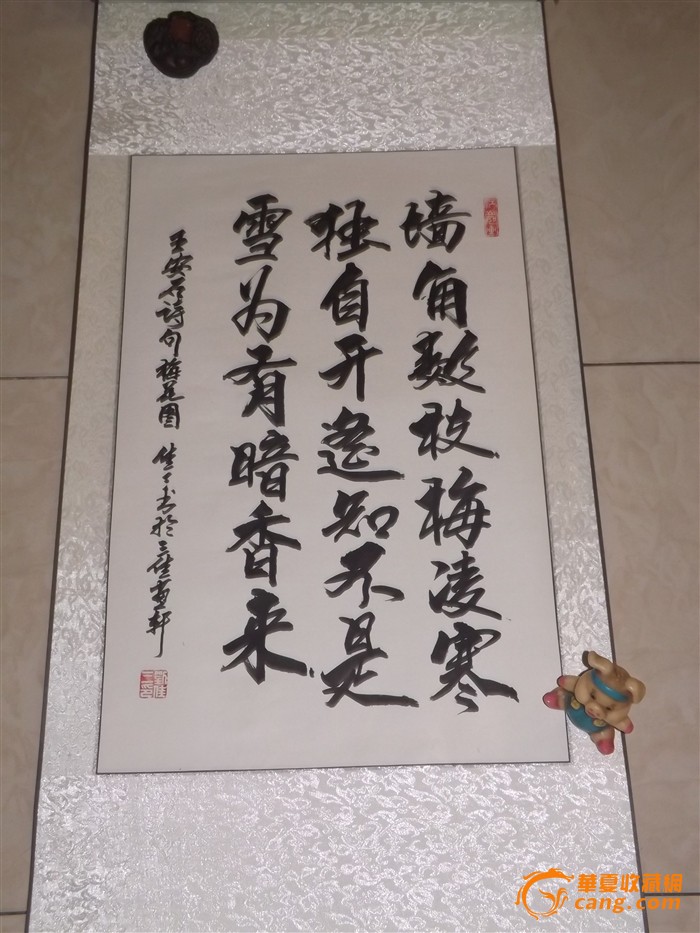 墙角数枝梅凌寒
独自开遥知不是
雪为有暗香来
王安石诗句梅花图 佳了书於三佳画轩
華夏收藏網
cang.com